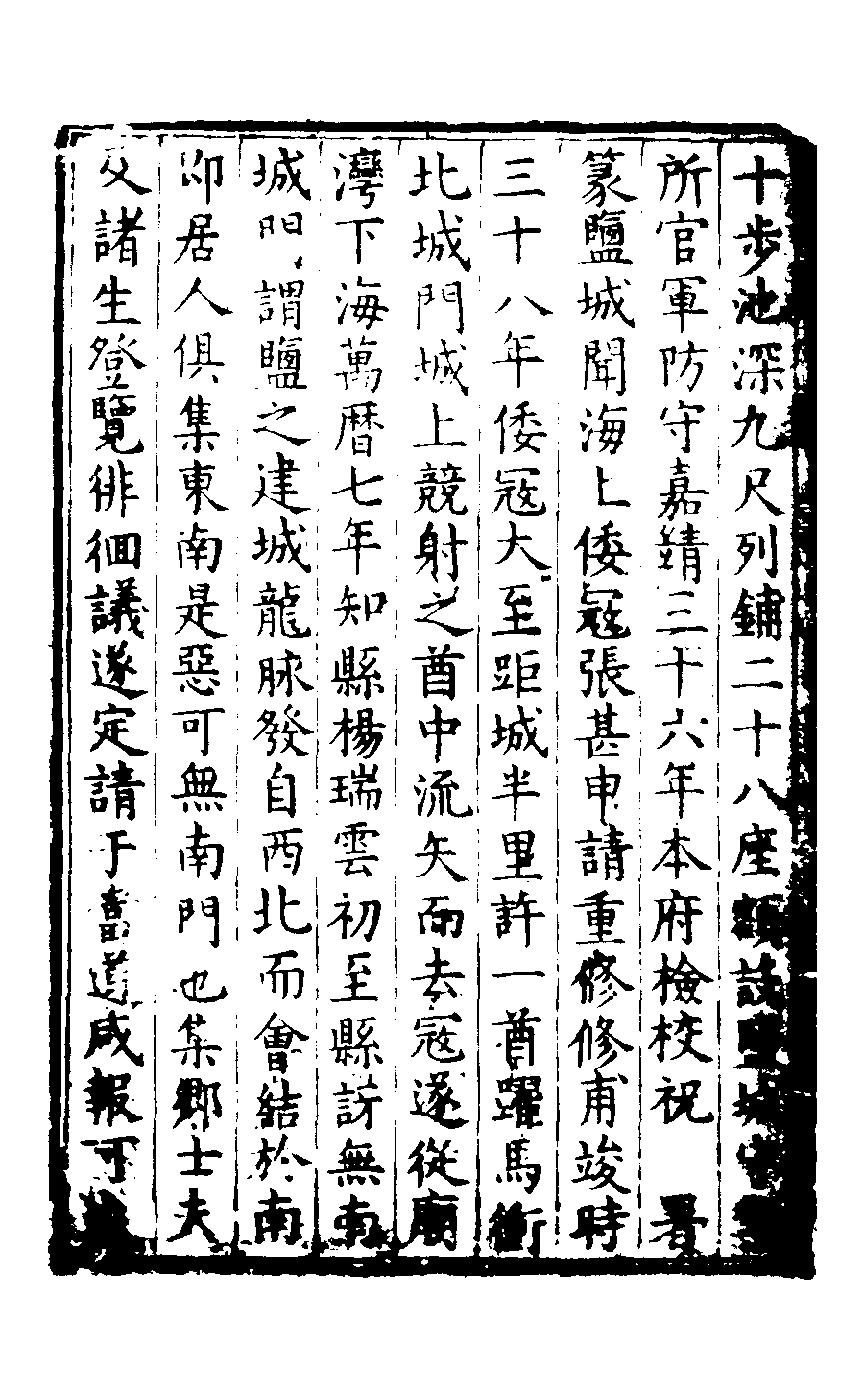 十步池深九尺列鋪二十八座額設鹽城守
所官軍防守嘉靖三十六年本府檢校祝 署
篆鹽城聞海上倭寇張甚申請重修修甫竣時
三十八年倭寇大至距城半里許一酋躍馬衝
北城門城上競射之酋中流矢而去寇遂從廟
灣下海萬曆七年知縣楊瑞雲初至縣訝無南
城門謂鹽之建城龍脉發自西北而會結於南
卽居人俱集東南是惡可無南門也集鄉士夫
及諸生登覽徘徊議遂定請于當道咸報可